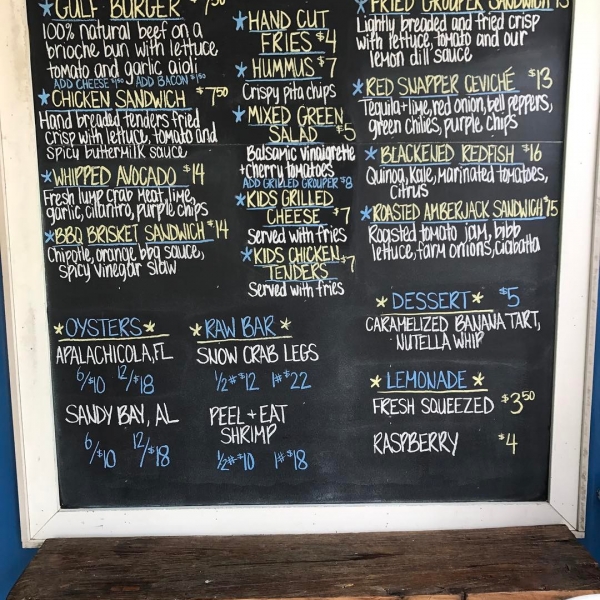 *GULF BURGER $7.50
100% natural beef on a
brioche bun with lettuce
tomato and garlic aioli
ADD CHEESE $1.50 ADD BACON $1.50
*CHICKEN SANDWICH $7.50
Hand breaded tenders fried
crisp with lettuce, tomato and
spicy buttermilk sauce
*WHIPPED AVOCADO $14
Fresh lump crab meat, lime,
garlic, cilantro, purple chips
*BBQ BRISKET SANDWICH $14
Chipotle, orange bbq sauce,
spicy vinegar slaw
*HAND CUT
FRIES $4
*HUMMUS $7
Crispy pita chips
*MIXED GREEN
SALAD $5
Balsamic vinaigrette
+cherry tomatoes
ADD GRILLED GROUPER $8
*KIDS GRILLED
CHEESE $7
Served with fries
*KIDS CHICKEN
TENDERS $7
Served with fries
*FRIED GROUPER SANDWICH 15
Lightly breaded and fried crisp
with lettuce, tomato and our
lemon dill sauce
*RED SNAPPER CEVICHÉ $13
Tequila+lime, red onion, bell peppers,
green chilies, purple chips
*BLACKENED REDFISH $16
Quinoa, Kale, Marinated tomatoes,
Citrus
*ROASTED AMBERJACK SANDWICH $15
Roasted tomato jam, bibb
lettuce, farm onions, ciabatta
*OYSTERS*
APALACHICOLA, FL
6/$10 12/$18
SANDY BAY, AL
6/$10 12/$18
*RAW BAR*
SNOW CRAB LEGS
1/2# $12 1# $22
PEEL + EAT
SHRIMP
1/2# $10 1# $18
*DESSERT* $5
CARAMELIZED BANANA TART,
NUTELLA WHIP
*LEMONADE*
FRESH SQUEEZED $3.50
RASPBERRY $4